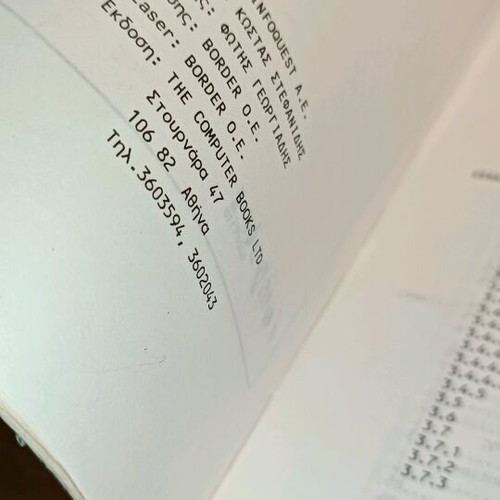 INFOQUEST A.E.
ς: ΚΩΣΤΑΣ ΣΤΕΦΑΝΙΔΗΣ
σης: ΦΩΤΗΣ ΓΕΩΡΓΙΑΔΗΣ
BORDER O.E.
Laser: BORDER O.E.
Εκδοση: THE COMPUTER BOOKS LTD
Στουρνάρα 47
106 82 Αθήνα
Τηλ.3603594, 3602043
3.4.5
3.5
3.6
3.7
3.7.1
3.7.2
3.7.3